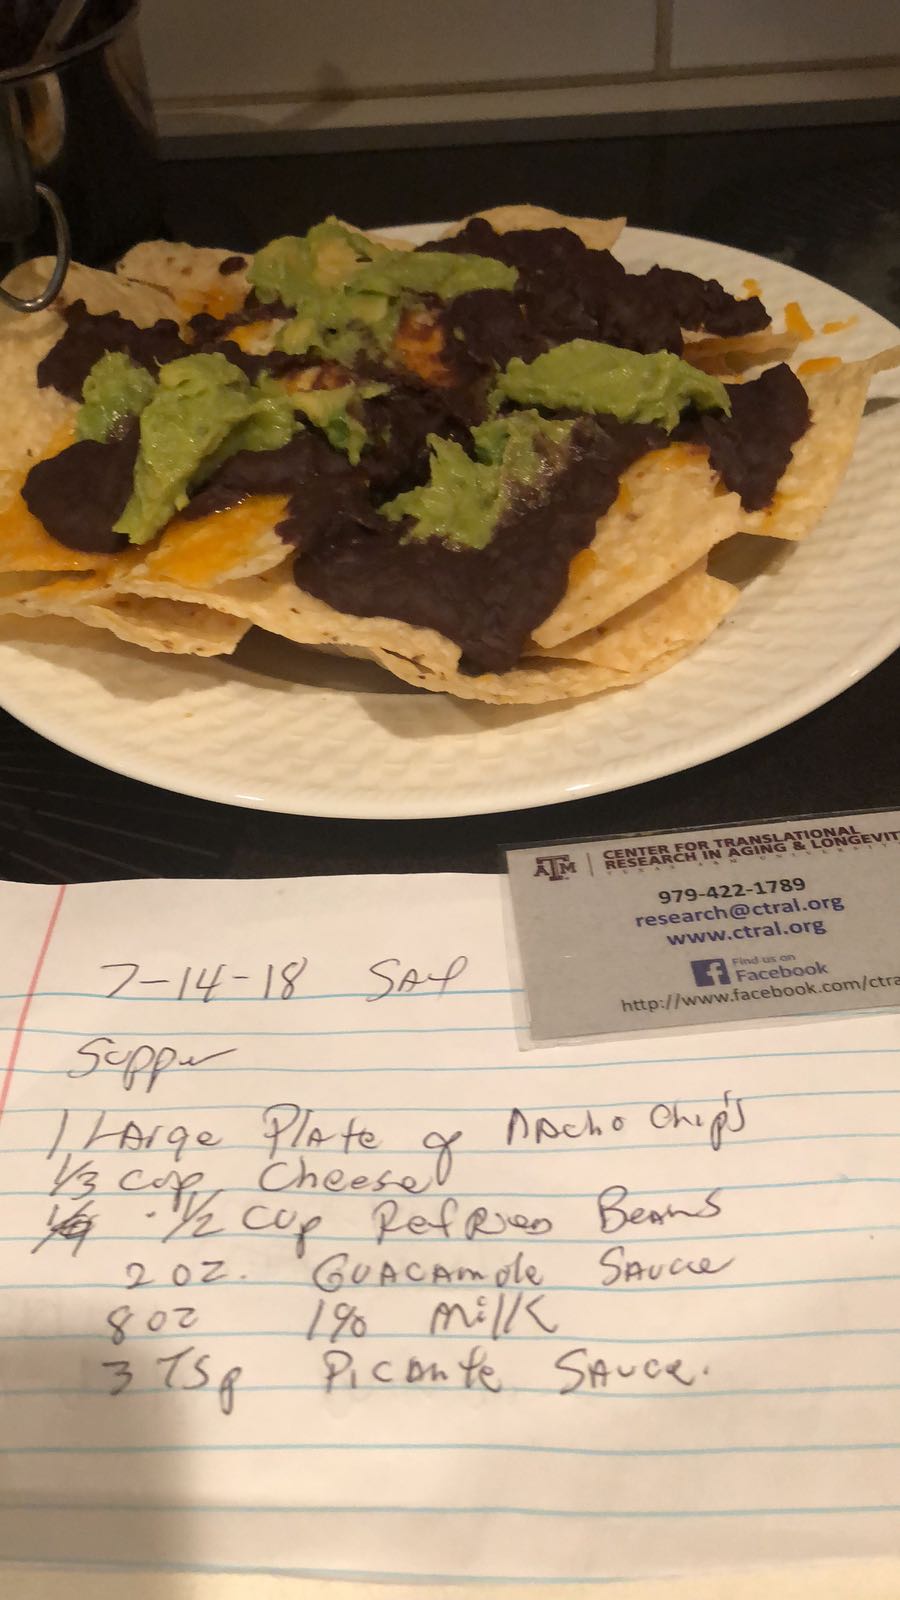 ATM
CENTER FOR TRANSLATIONAL
RESEARCH IN AGING & LONGEVIT
979-422-1789
research@ctral.org
www.ctral.org
Find us on
Facebook
http://www.facebook.com/ctra
7-14-18 SAT
Supper
1 LArge PlAte of NAcho Chip's
1/3 cup Cheese
1/2 cup RefRied BeaNs
2 oz. GUACAmole SAUce
8 oz 1% Milk
3 TSp PicAnte SAUce.